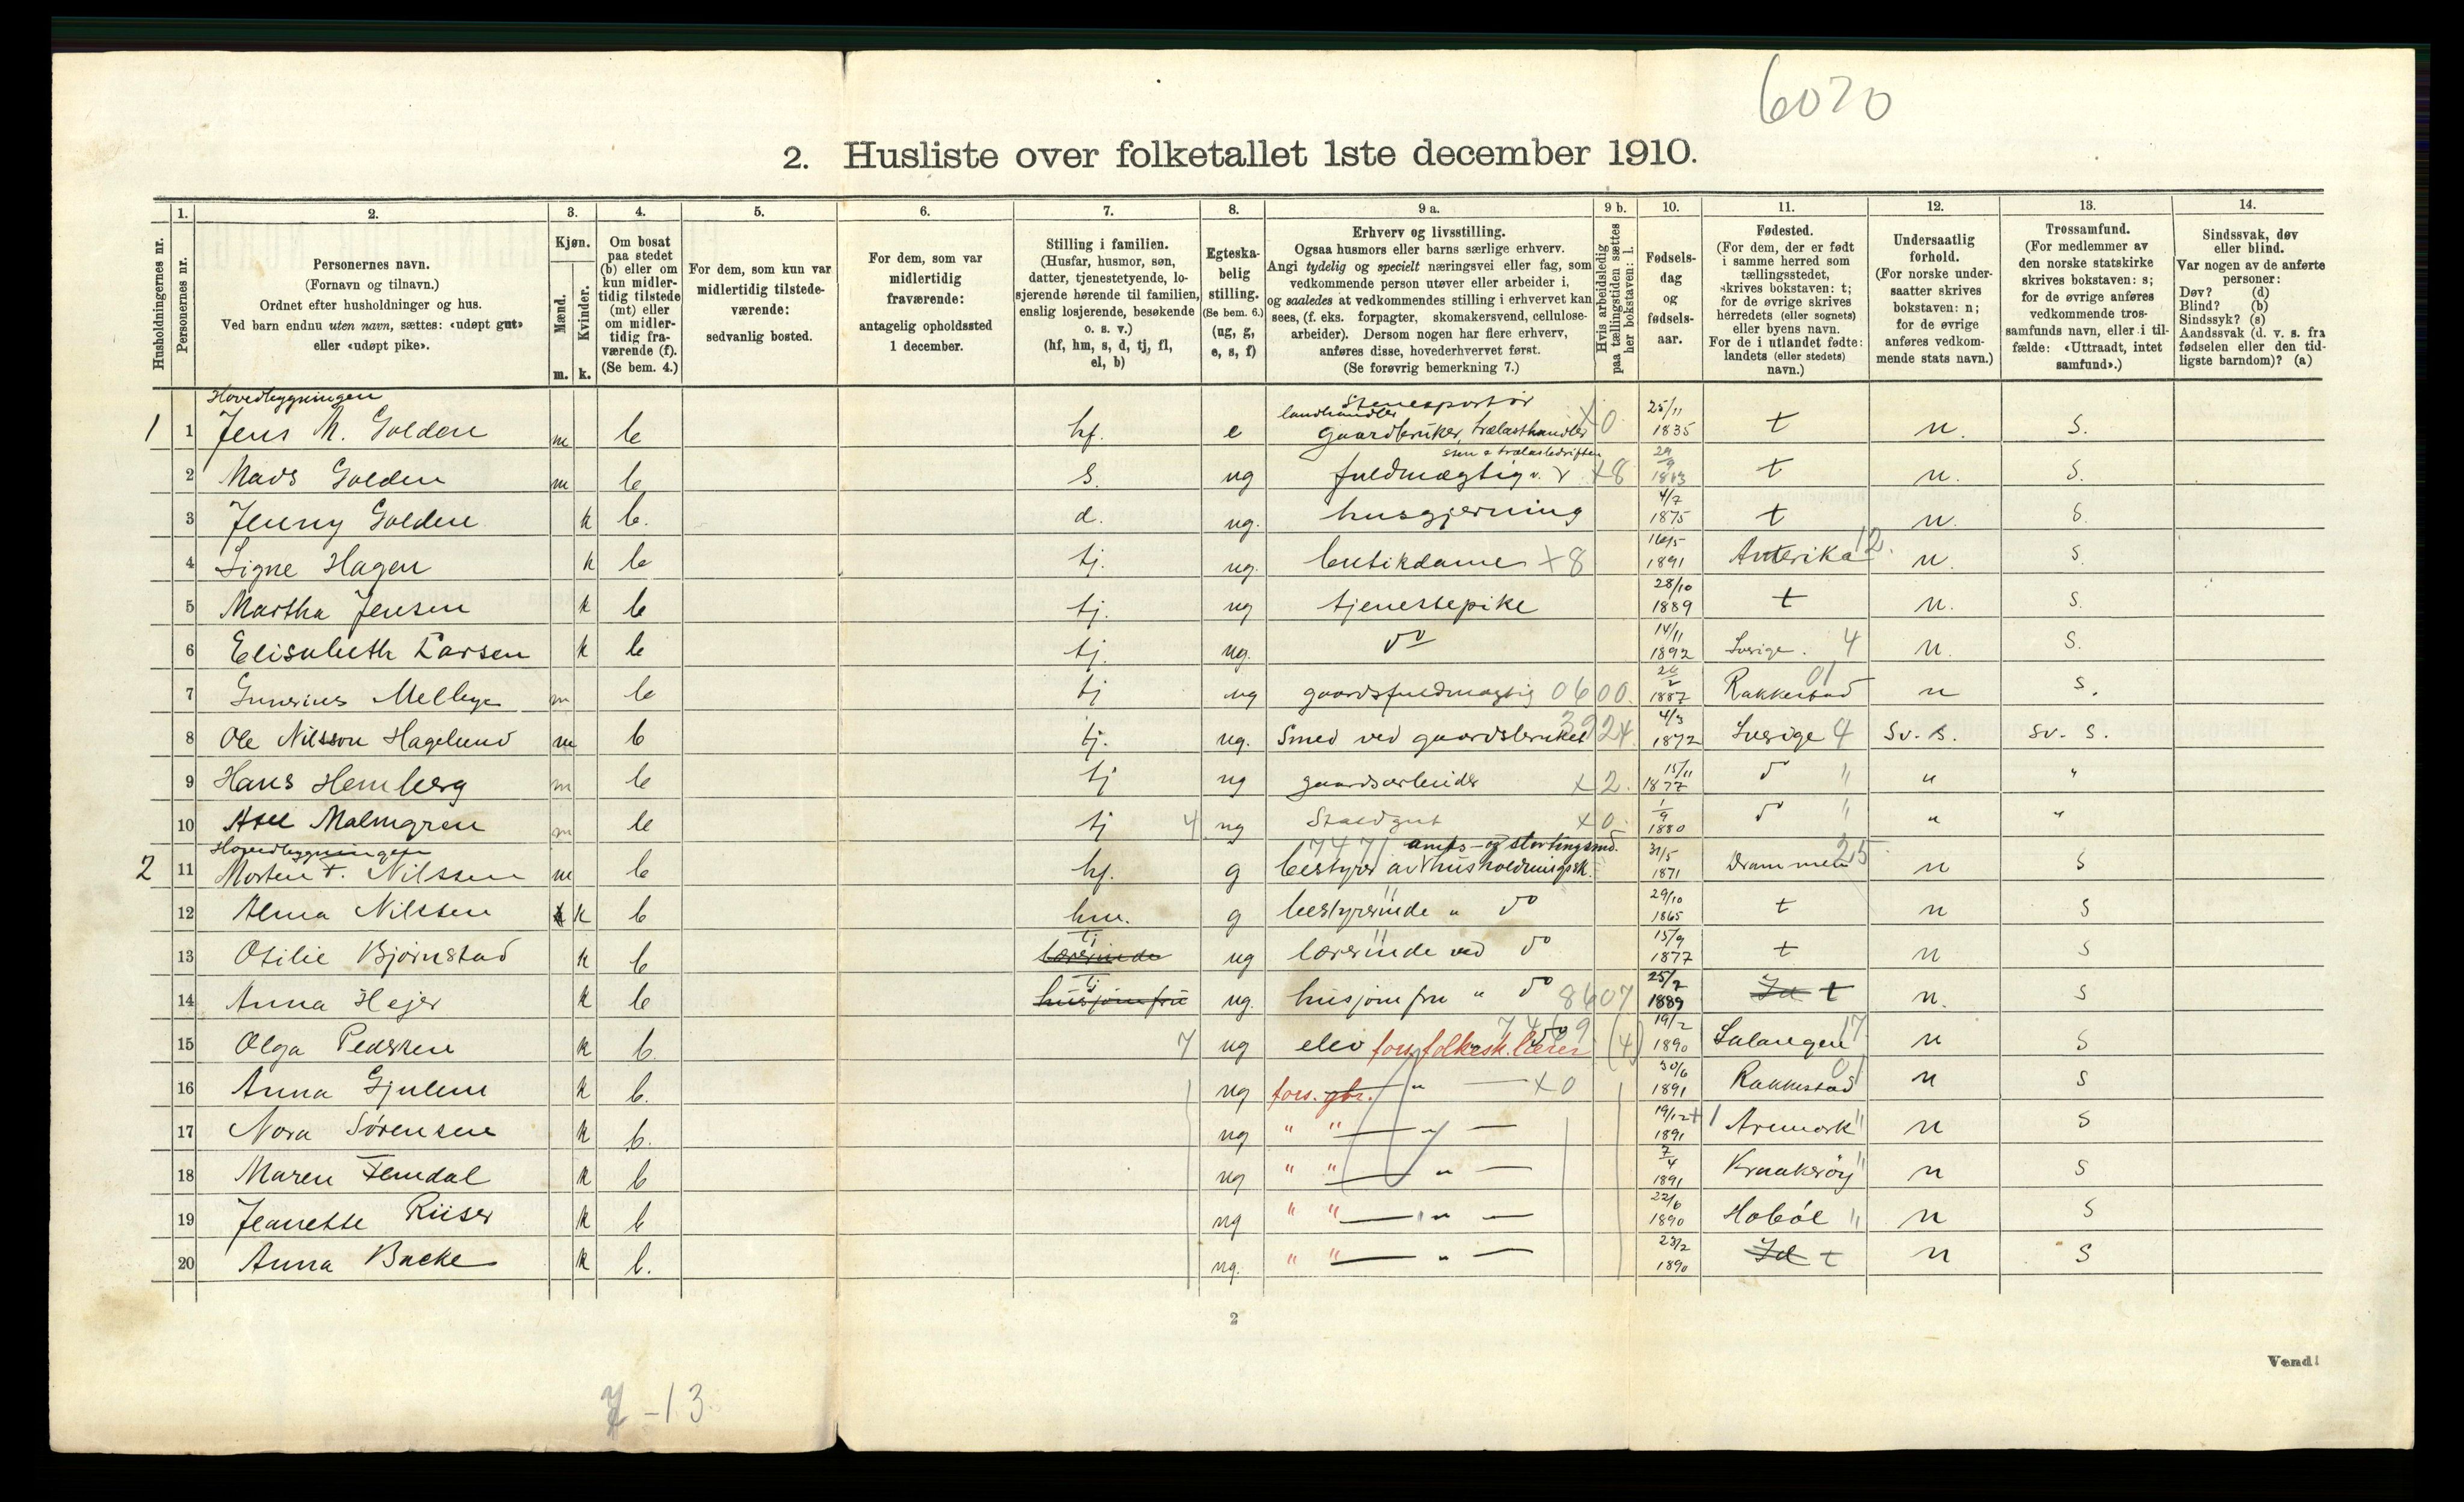 6020
2. Husliste over folketallet 1ste december 1910.
Husholdningernes nr.
1.
Personernes nr.
2.
Personernes navn.
(Fornavn og tilnavn.)
Ordnet efter husholdninger og hus.
Ved barn endnu uten navn, sættes: «udøpt gut»
eller «udøpt pike».
3.
Kjøn.
Mænd.
Kvinder.
m. k.
4.
Om bosat
paa stedet
(b) eller om
kun midler-
tidig tilstede
(mt) eller
om midler-
tidig fra-
værende (f).
(Se bem. 4.)
5.
For dem, som kun var
midlertidig tilstede-
værende:
sedvanlig bosted.
6.
For dem, som var
midlertidig
fraværende:
antagelig opholdssted
1 december.
7.
Stilling i familien.
(Husfar, husmor, søn,
datter, tjenestetyende, lo-
sjerende hørende til familien,
enslig losjerende, besøkende
o. s. v.)
(hf, hm, s, d, tj, fl,
el, b)
8.
Egteska-
belig
stilling.
(Se bem. 6.)
(ug, g,
e, s, f)
9 a.
Erhverv og livsstilling.
Ogsaa husmors eller barns særlige erhverv.
Angi tydelig og specielt næringsvei eller fag, som
vedkommende person utøver eller arbeider i,
og saaledes at vedkommendes stilling i erhvervet kan
sees, (f. eks. forpagter, skomakersvend, cellulose-
arbeider). Dersom nogen har flere erhverv,
anføres disse, hovederhvervet først.
(Se forøvrig bemerkning 7.)
9 b.
Hvis arbeidsledig
paa tællingstiden sættes
her bokstaven: l.
10.
Fødsels-
dag
og
fødsels-
aar.
11.
Fødested.
(For dem, der er født
i samme herred som
tællingsstedet,
skrives bokstaven: t;
for de øvrige skrives
herredets (eller sognets)
eller byens navn.
For de i utlandet fødte:
landets (eller stedets)
navn.)
12.
Undersaatlig
forhold.
(For norske under-
saatter skrives
bokstaven: n;
for de øvrige
anføres vedkom-
mende stats navn.)
13.
Trossamfund.
(For medlemmer av
den norske statskirke
skrives bokstaven: s;
for de øvrige anføres
vedkommende tros-
samfunds navn, eller i til-
fælde: «Uttraadt, intet
samfund».)
14.
Sindssvak, døv
eller blind.
Var nogen av de anførte
personer:
Døv? (d)
Blind? (b)
Sindssyk? (s)
Aandssvak (d. v. s. fra
fødselen eller den tid-
ligste barndom)? (a)
Hovedbygningen
Stenexportør
landhandler
1 1 Jens M. Golden m b hf. e gaardbruker, trælasthandler X 0 25/11 1835 t n. S.
sten & trælastedriften
2 Mads Golden m b s. ug fuldmægtig v. X 8 29/9 1883 t n. S.
3 Jenny Golden k b. d. ug. husgjerning 4/7 1875 t n. S.
4 Signe Hagen k b tj. ug. butikdame X 8 16/5 1891 Amerika 12. n. S.
5 Martha Jensen k b tj. ug tjenestepike 28/10 1889 t n. S.
6 Elisabeth Larsen k b tj. ug. do 14/11 1892 Sverige. 4 n. S.
7 Gunerius Mellbye m b tj ug gaardsfuldmægtig 06 00. 26/2 1887 Rakkestad 01 n S.
8 Ole Nilsson Hagelund m b tj. ug. Smed ved gaardsbruket 392 4 4/3 1872 Sverige 4 Sv. S. Sv. S.
9 Hans Hemberg m b tj ug gaardsarbeider X 2. 15/11 1877 do " " "
10 Axel Malmgren m b tj 4 ug Staldgut X 0. 1/9 1880 do " " "
Hovedbygningen
7471 amts- og stortingsmd.
2 11 Morten t. Nilssen m b hf. g bestyrer av husholdningssk. 31/5 1871 Drammen 25 n S
12 Alma Nilssen k b hm. g bestyrerinde " do 29/10 1865 t n S
13 Otilie Bjørnstad k b lærerinde tj ug lærerinde ved do 15/9 1877 t n S
14 Anna Hejer k b husjomfru tj ug. husjomfru " do 8607 25/7 1889 Id t n. S
15 Olga Pedersen k b. 7 ug elev fors. folkesk. lærer (4) 19/2 1890 Salangen 17 n S
16 Anna Gjulem k b. ug fors. gbr. " X 0 30/6 1891 Rakkestad 01 n S
17 Nora Sørensen k b. ug " " " 19/12 1891 Aremark " n S
18 Maren Femdal k b ug " " " 7/4 1891 Kraakerøy " n S
19 Jeanette Riiser k b ug " " " 22/6 1890 Hobøl " n S
20 Anna Backe k b. ug. " " " 23/2 1890 Id t n S
2
Vend!
7 - 13